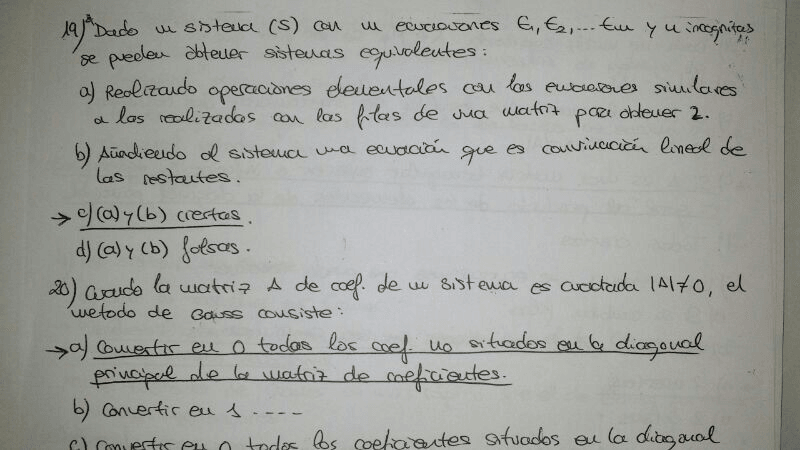 19) Dado un sistema (S) con m ecuaciones E1, E2, ... Em y n incognitas
se pueden obtener sistemas equivalentes:
a) Realizando operaciones elementales con las ecuaciones similares
a las realizadas con las filas de una matriz para obtener 2.
b) Añadiendo al sistema una ecuación que es convinación lineal de
las restantes.
→ c) (a) y (b) ciertas.
d) (a) y (b) falsas.
20) Cuando la matriz A de coef. de un sistema es cuadrada |A|≠0, el
metodo de Gauss consiste:
→ a) Convertir en 0 todos los coef. no situados en la diagonal
principal de la matriz de coeficientes.
b) Convertir en 1 ....
c) Convertir en 0 todos los coeficientes situados en la diagonal